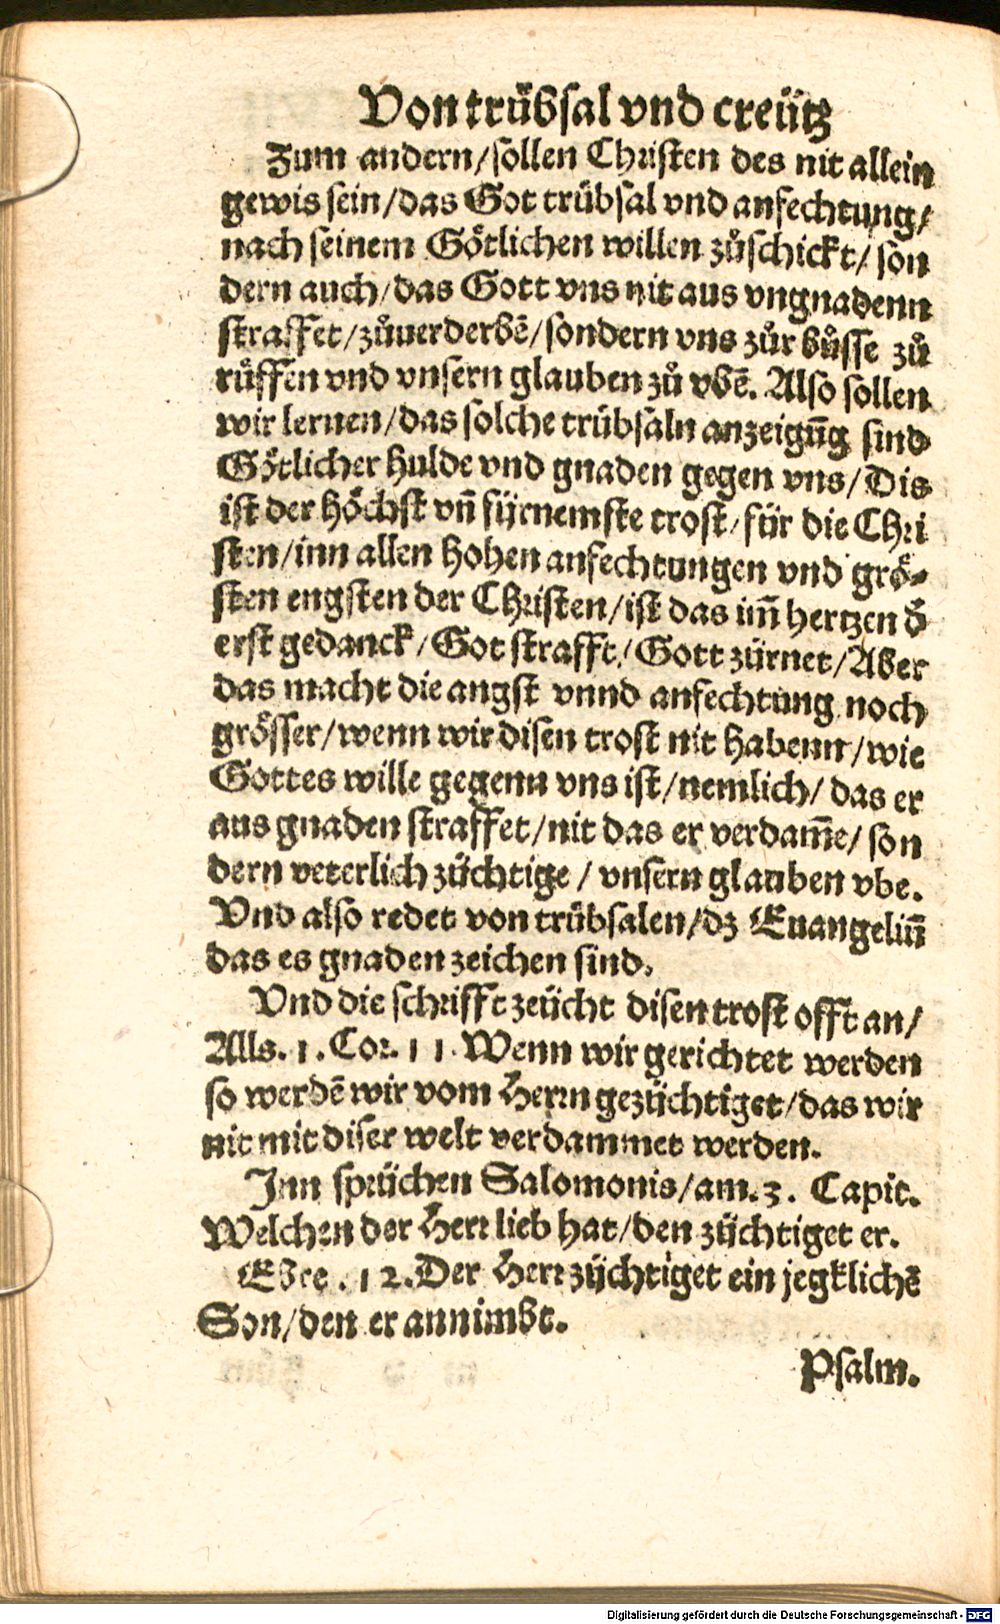 Von trübsal vnd creütz
Zum andern/sollen Christen des nit allein
gewis sein/das Got trübsal vnd anfechtung/
nach seinem Götlichen willen zůschickt/son
dern auch/das Gott vns nit aus vngnadenn
straffet/zůuerderbē/sondern vns zůr bůsse zů
růffen vnd vnsern glauben zů vbē. Also sollen
wir lernen/das solche trübsaln anzeigūg sind
Götlicher hulde vnd gnaden gegen vns/Dis
ist der höchst vn̄ fürnemste trost/für die Chri
sten/inn allen hohen anfechtungen vnd grö⸗
sten engsten der Christen/ist das im̄ hertzen d̄
erst gedanck/Got strafft/Gott zürnet/Aber
das macht die angst vnnd anfechtung noch
grösser/wenn wir disen trost nit habenn/wie
Gottes wille gegenn vns ist/nemlich/das er
aus gnaden straffet/nit das er verdam̄e/son
dern veterlich züchtige/vnsern glauben vbe.
Vnd also redet von trübsalen/dz Euangeliū
das es gnaden zeichen sind.
Vnd die schrifft zeücht disen trost offt an/
Alls. 1. Cor. 11. Wenn wir gerichtet werden
so werdē wir vom Herrn gezüchtiget/das wir
nit mit diser welt verdammet werden.
Inn sprüchen Salomonis/am. 3. Capit.
Welchen der Herr lieb hat/den züchtiget er.
Ebre. 12. Der Herr züchtiget ein jegklichē
Son/den er annimbt.
Psalm.
Digitalisierung gefördert durch die Deutsche Forschungsgemeinschaft - DFG